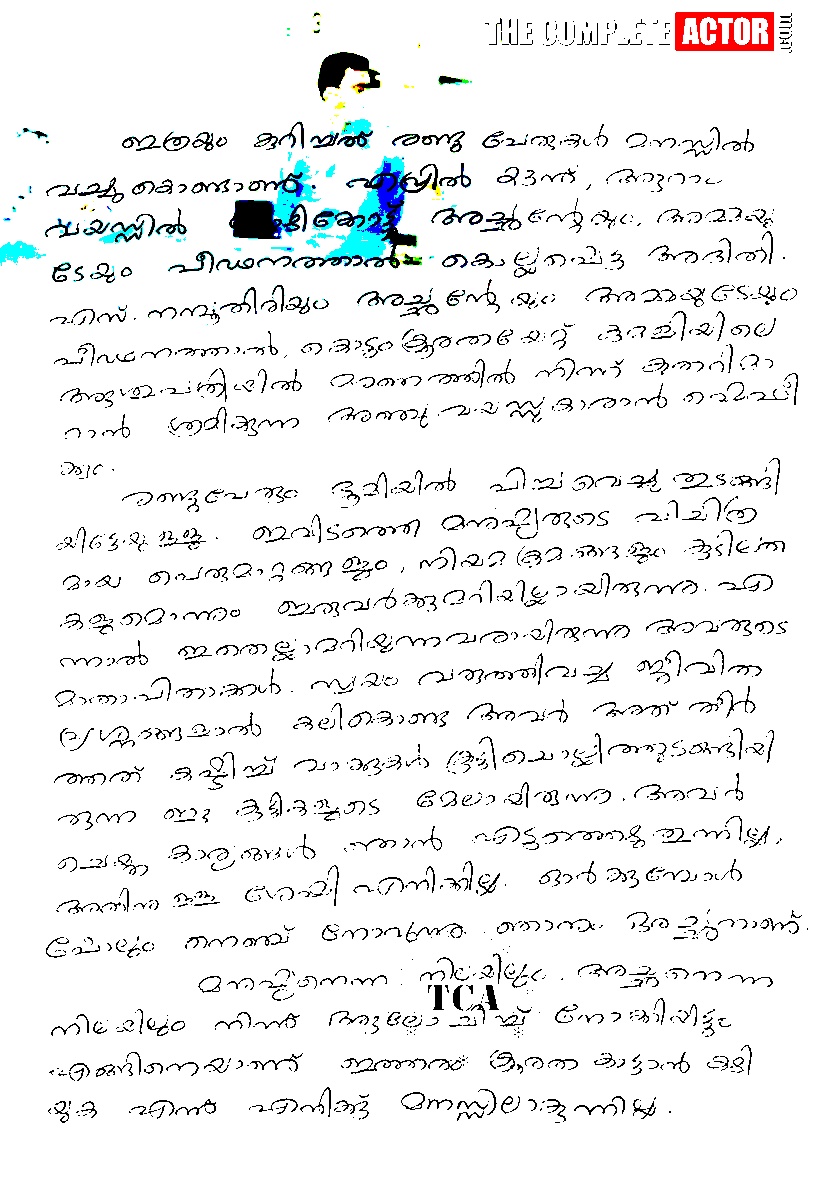 THE COMPLETE ACTOR
ഇത്രയും കുറിച്ചത് രണ്ടു പേരുകൾ മനസ്സിൽ
വച്ചുകൊണ്ടാണ്. ഏപ്രിൽ ആറാം
വയസ്സിൽ കോഴിക്കോട്ട് അച്ഛന്റേയും, അമ്മയു
ടേയും പീഢനത്താൽ കൊല്ലപ്പെട്ട അദിതി.
എസ്. നമ്പൂതിരിയും അച്ഛന്റേയും അമ്മയുടേയും
പീഢനത്താൽ, കൊടുംക്രൂരതയേറ്റ്
ആശുപത്രിയിൽ മരണത്തിൽ നിന്ന് കുതറിമാ
റാൻ ശ്രമിക്കുന്ന അഞ്ചു വയസ്സുകാരൻ ഷെഫീ
ക്കും.
രണ്ടുപേരും ഭൂമിയിൽ പിച്ചവെച്ചു തുടങ്ങി
യിട്ടേയുള്ളൂ. ഇവിടത്തെ മനുഷ്യരുടെ വിചിത്ര
മായ പെരുമാറ്റങ്ങളും, നിയമക്രമങ്ങളും കുടിലത
കളുമൊന്നും ഇരുവർക്കുമറിയില്ലായിരുന്നു. എ
ന്നാൽ ഇതെല്ലാമറിയുന്നവരായിരുന്നു അവരുടെ
മാതാപിതാക്കൾ. സ്വയം വരുത്തിവച്ച ജീവിത
പ്രശ്നങ്ങളാൽ കലികൊണ്ട അവർ അത് തീർ
ത്തത് കഷ്ടിച്ച് വാക്കുകൾ കൂട്ടിചൊല്ലിത്തുടങ്ങിയി
രുന്ന ഈ കുട്ടികളുടെ മേലായിരുന്നു. അവർ
ചെയ്ത കാര്യങ്ങൾ ഞാൻ എടുത്തെഴുതുന്നില്ല,
അതിനുള്ള ശേഷി എനിക്കില്ല. ഓർക്കുമ്പോൾ
പോലും നെഞ്ച് നോവുന്നു. ഞാനും ഒരച്ഛനാണ്.
മനുഷ്യനെന്ന നിലയിലും, അച്ഛനെന്ന
TCA
നിലയിലും നിന്ന് ആലോചിച്ച് നോക്കിയിട്ടും
എങ്ങിനെയാണ് ഇത്തരം ക്രൂരത കാട്ടാൻ കഴി
യുക എന്ന് എനിക്ക് മനസ്സിലാകുന്നില്ല.